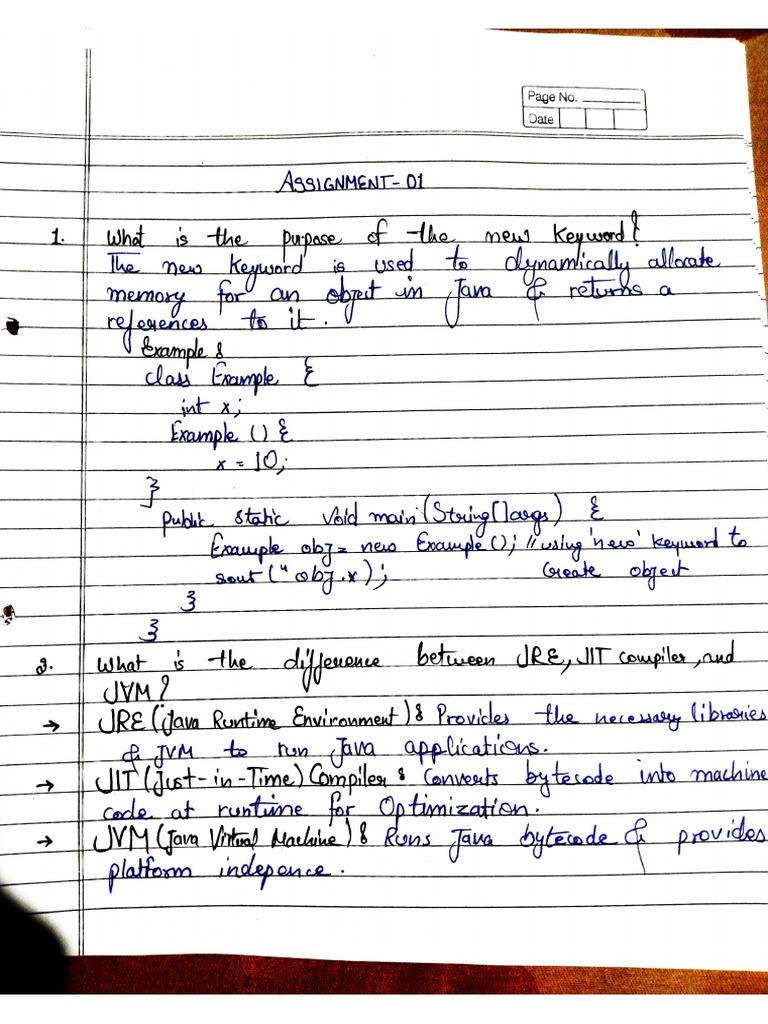 Page No.
Date
ASSIGNMENT-01
1. What is the purpose of the new keyword?
The new keyword is used to dynamically allocate
memory for an object in Java & returns a
references to it.
Example :
class Example {
int x;
Example () {
x = 10;
}
public static void main (String[] args) {
Example obj = new Example(); // using 'new' keyword to
create object
sout (" obj.x);
}
}
2. What is the difference between JRE, JIT compiler, and
JVM?
→ JRE (Java Runtime Environment) : Provides the necessary libraries
& JVM to run Java applications.
→ JIT (Just-in-Time) Compiler : Converts bytecode into machine
code at runtime for Optimization.
→ JVM (Java Virtual Machine) : Runs Java bytecode & provides
platform indepence.